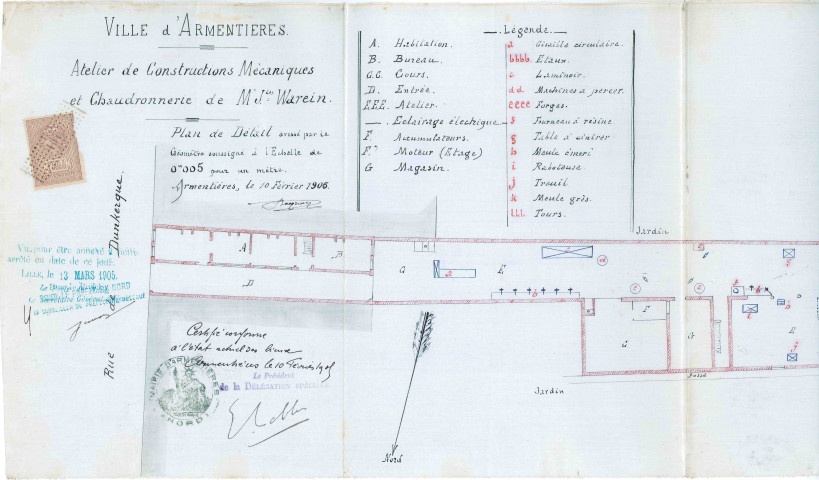 VILLE d'ARMENTIERES.
Atelier de Constructions Mécaniques
et Chaudronnerie de Mr Jen Warein.
Plan de Détail dressé par le
Géomètre soussigné à l'Echelle de
0m005 pour un mètre.
Armentières, le 10 Février 1905.
Légende.
A. Habitation.
B. Bureau.
C.C. Cours.
D. Entrée.
E.E.E. Atelier.
Eclairage électrique
F. Accumulateurs.
F." Moteur (Etage)
G Magasin.
a Cisaille circulaire.
bbbb. Etaux.
c Laminoir.
dd Machines à percer.
eeee Forges.
f Fourneau à résine
g Table à cintrer
h Meule émeri
i Raboteuse.
j Treuil
k Meule grès.
l.l.l. Tours.
Rue de Dunkerque.
Vu pour être annexé à notre
arrêté en date de ce jour.
LILLE, le 13 MARS 1905.
Certifié conforme
à l'état actuel des lieux
Armentières le 10 Février 1905
Le Président
de la DÉLÉGATION SPÉCIALE
MAIRIE D'ARMENTIÈRES
(NORD)
Jardin
A
B
D
G
E
F
Fossé
Jardin
Nord